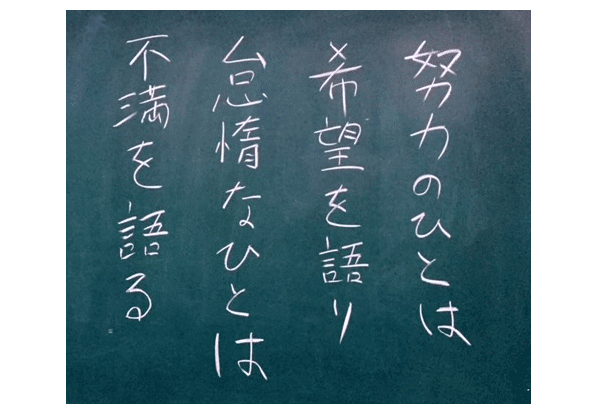 努力のひとは
希望を語り
怠惰なひとは
不満を語る